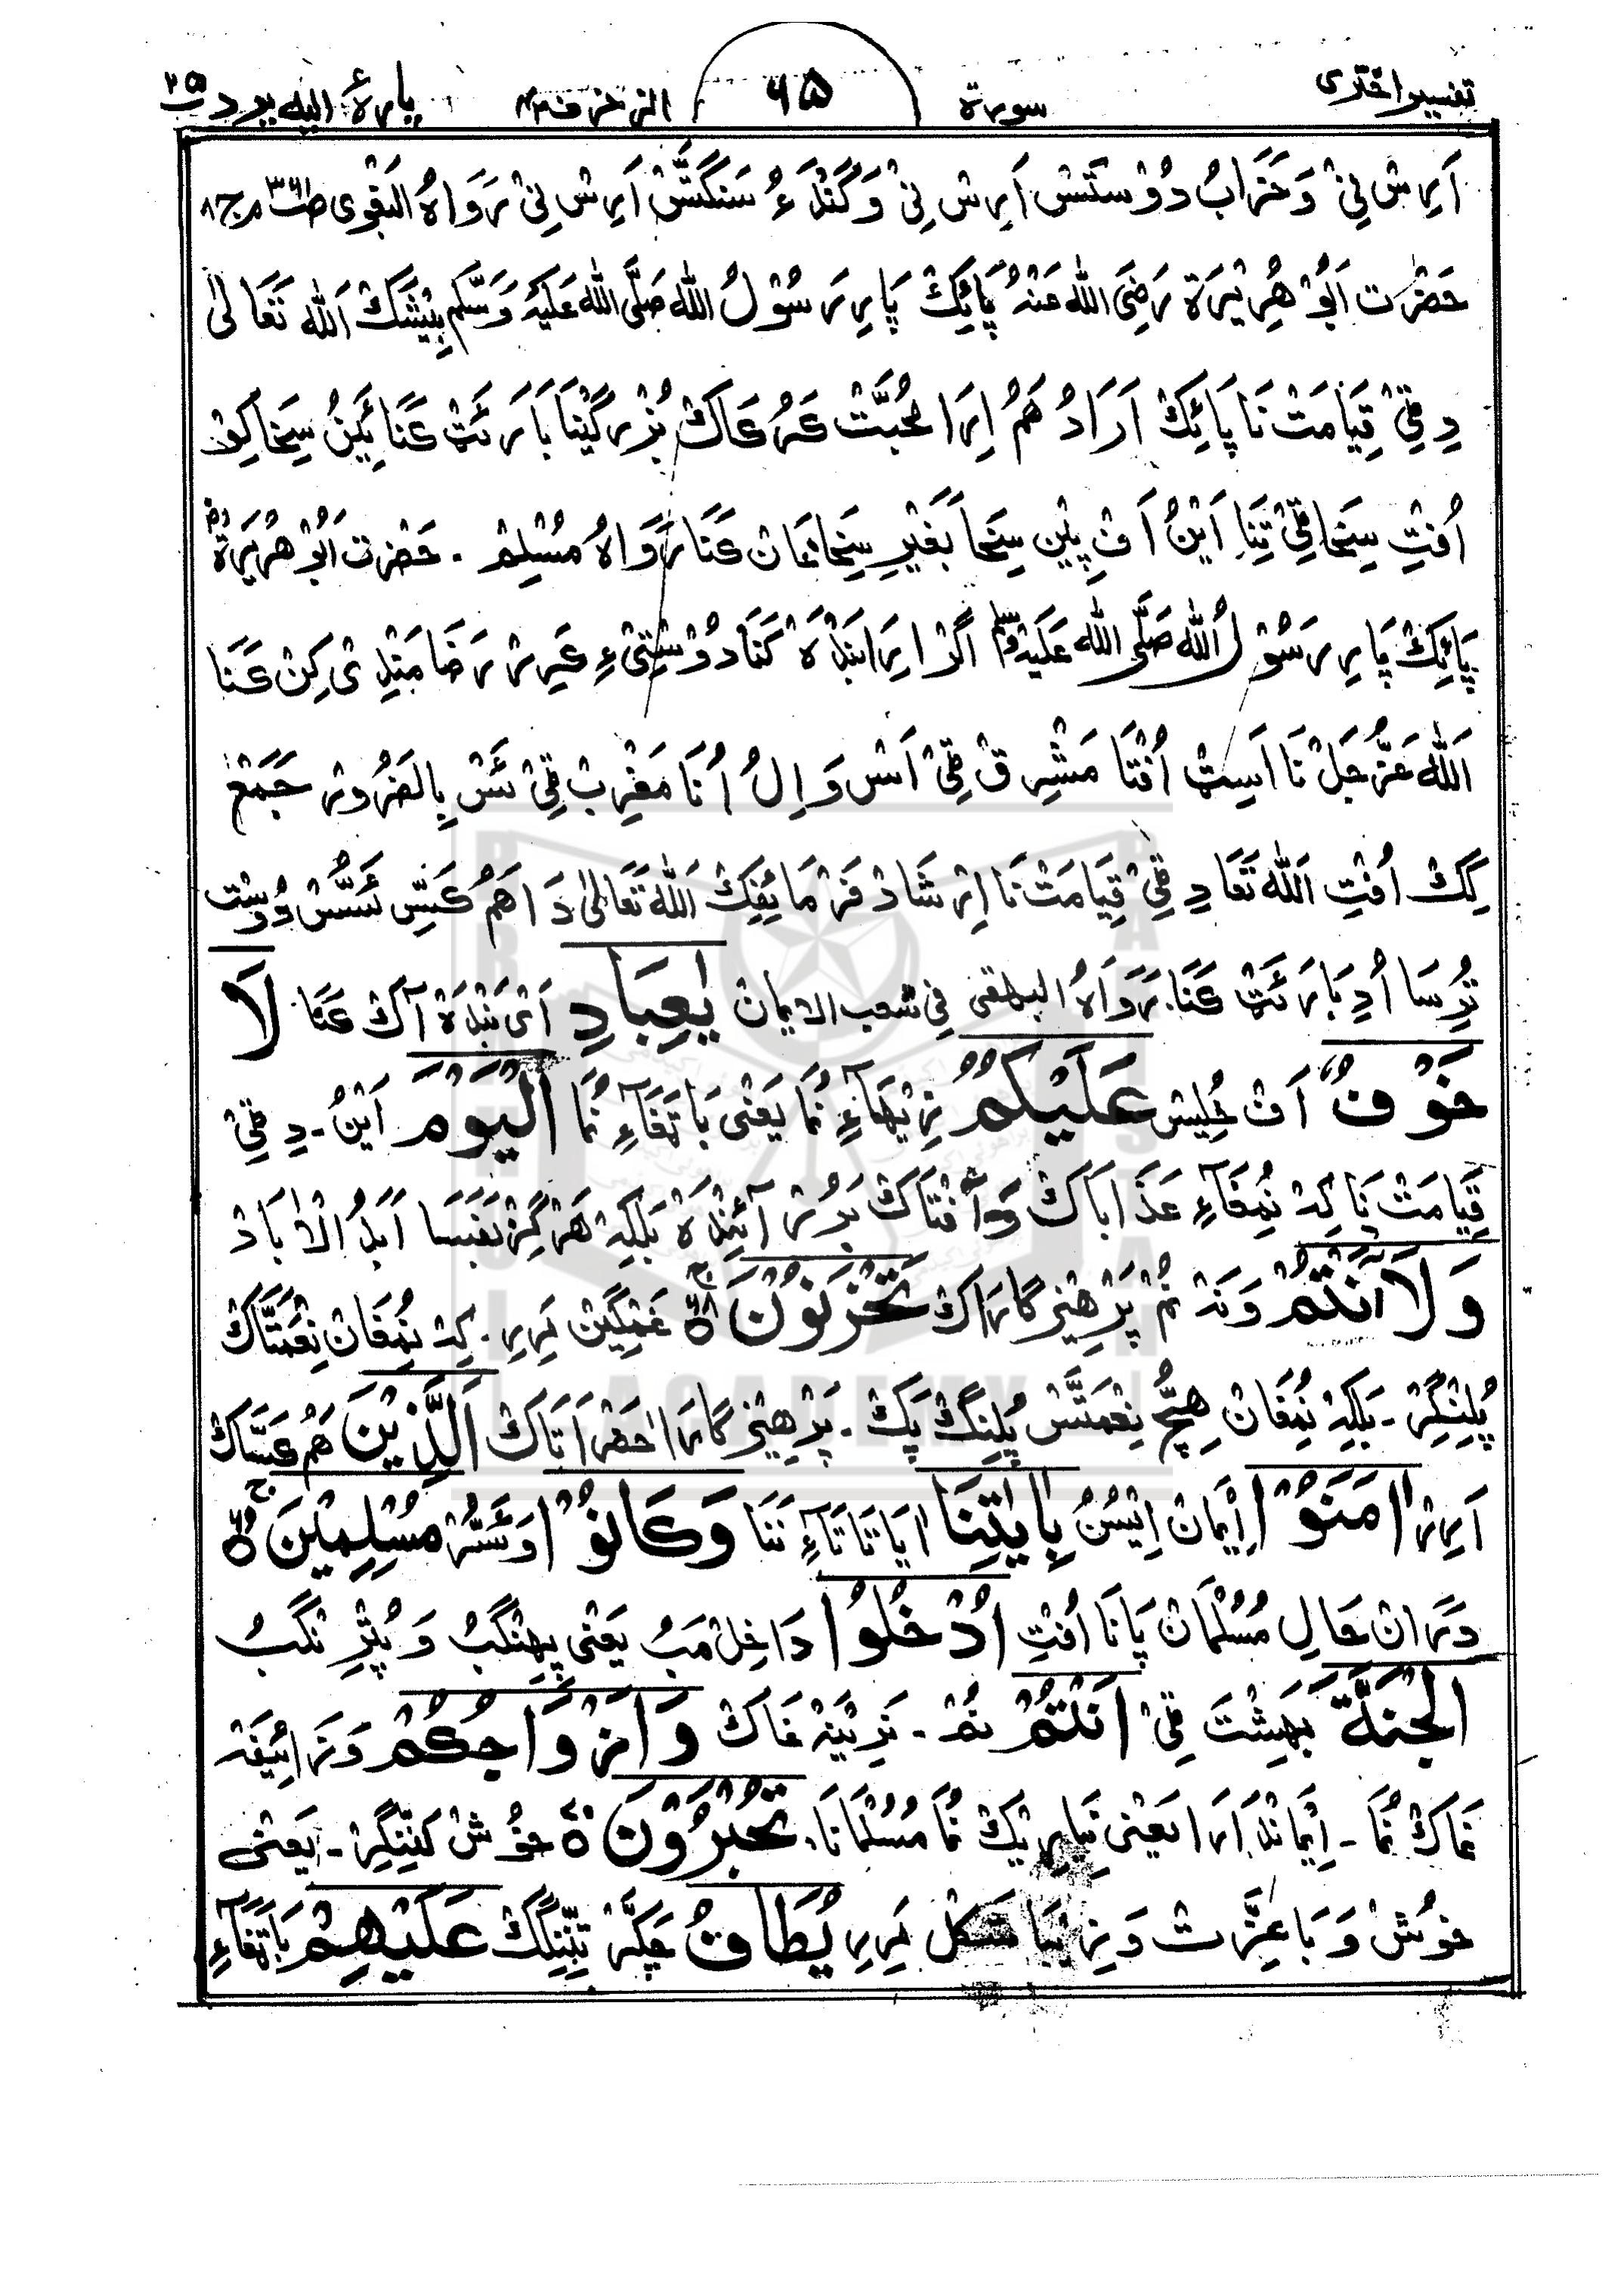 تفسير اختری سورة ٦٥ الزخرف ٤٣ پارۂ اليه يرد ٢٥
اَرِش نِیْ وَ خَرَابُ دُوْستَس اَرِس نِیْ وَ گَنْدَهٔ ءُ سَنگَتَّس اَرِس نِیْ رَوَاهُ البَغْوِی
حَضْرَت اَبُوْ هُرِيْرَة رَضِیَ الله عَنْهُ پَائِکْ پَارِ رَسُوْلُ الله صَلَّی الله عَلَیْهِ وَسَّلَم بِيْشَکْ اَلله تَعَالٰی
دِ قِیْ قِیَامَتْ نَا پَائِکْ اَرَادُ هَمُ اِرَا مُحَبَّتْ کَرُکَاکْ بُزْرَگِیْنَا بَارَئَتْ کَنَا اَیْنُ سِیخَا کِوْ
اُفْتِ سِیخَا قِیْ تِنَا اَیْنُ اَفْ پِیْن سِیخَا بَغَیْرِ سِیخَا غَانْ کَنَا رَوَاهُ مُسْلِمْ ۔ حَضْرت اَبُوْ هُرَیرَةؓ
پَائِکْ پَارِ رَسُوْلُ الله صَلَّی الله عَلَیْهِ وسلم اَگَرْ اِرَا بَنْدَهْ کَنَا دُوْسْتِیْ ءِ کَرِرْ رَضَامَنْدِی کِنْ کَنَا
اَلله عَزَّ جَلْ نَا اَسِتْ اُفْتَا مَشْرِقْ قِیْ اَسْ وَ اِلُ اُنَا مَغْرِبْ قِیْ ئَسْ بِالضَرُورْ جَمَعْ
کِکْ اُفْتِ اَلله تَعَا دِ قِیْ قِیَامَتْ نَا اِرْشَادْ فَرْمَائِفِکْ اَلله تَعَالٰی دَا هَمُ کَسِّ ئَسُّسْ دُوْسْت
تُرِسَا اُدِ بَارَئَتْ کَنَا رَوَاهُ البیهقی فی شعب الایمان یٰعِبَادِ اَیْ بَنْدَهْ آکْ کَنَا لَا
خَوْفٌ اَفْ خُلِیس عَلَیْکُمُ نِزیْهَاءِ نُمَا یَعْنِی بَا تَغَاءِ نُمَا الْیَوْمَ اَیْنُ ۔ دِ قِیْ
قِیَامَتْ نَا کِهْ نُمْغَاءِ عَذَابَاکْ وَ اٰفْتَاکْ بَرُرْ آئِنْدَهْ بَلْکِهْ هَرْگِزْ نَفَسَا اَبَدُ الْاٰبَادْ
وَلَا اَنْتُمْ وَنَهْ نُمْ پَرْهِیْزگَارَاکْ تَحْزَنُوْنَ ۝ غَمْگِیْن مَرِرِ ۔ کِهْ نُمْغَانْ نِعْمَتَّاکْ
پُلِنْگِرْ ۔ بَلْکِهْ نُمْغَانْ هِچُّ نِعْمَتَّس پُلِنْگْ پَکْ ۔ پَرْهِیْزگَارَا حَضْرَاتَاکْ اَلَّذِیْنَ هَمُ کَسَّاکْ
اَرِرْ اٰمَنُوْا اِیْمَانْ اِیْسُنُ بِاٰیٰتِنَا اٰیَاتَا تَاءِ نَنَا وَکَانُوْا وَ ئَسُّرْ مُسْلِمِیْنَ ۝
دَرَانْ حَالِ مُسُلْمَانْ پَانَا اُفْتِ اُدْخُلُوا دَاخِلْ مَبُ یَعْنِی پِهْنِگَبُ وَ پُتْرِ نْگَبُ
الْجَنَّةَ بَهِشْتَ قِیْ اَنْتُمْ نُمْ ۔ نَرِیْنَهْ غَاکْ وَ اَزْوَاجُکُمْ وَ زَائِیْفَهْ
غَاکْ نُمَا ۔ اِیْمَانْدَارَا یَعْنِی نِیَارِیْکْ نُمَا مُسُلْمَانَا تُحْبَرُوْنَ ۝ خُوْشْ کَنِنِگِرْ ۔ یَعْنِی
خُوْشْ وَ بَا عِزَّتْ وَ زِیْبَا شَکْل مَرِرِ یُطَافُ چَکَّرْ تِنِّنِگِکْ عَلَیْهِمْ بَاتَغَاءِ